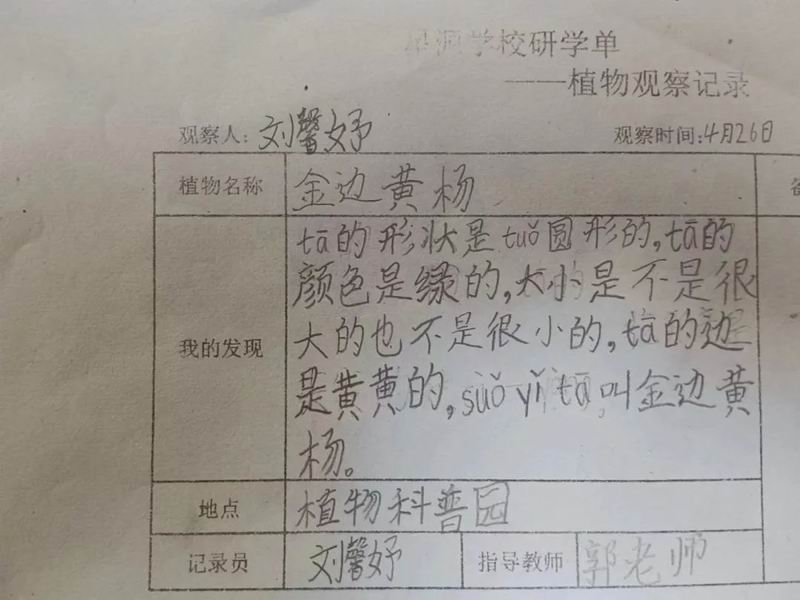 学校研学单
——植物观察记录
观察人：刘馨妤 观察时间：4月26日
植物名称 金边黄杨
我的发现 tā的形状是tuǒ圆形的，tā的
颜色是绿的，大小是不是很
大的也不是很小的，tā的边
是黄黄的，suǒ yǐ tā，叫金边黄
杨。
地点 植物科普园
记录员 刘馨妤 指导教师 郭老师